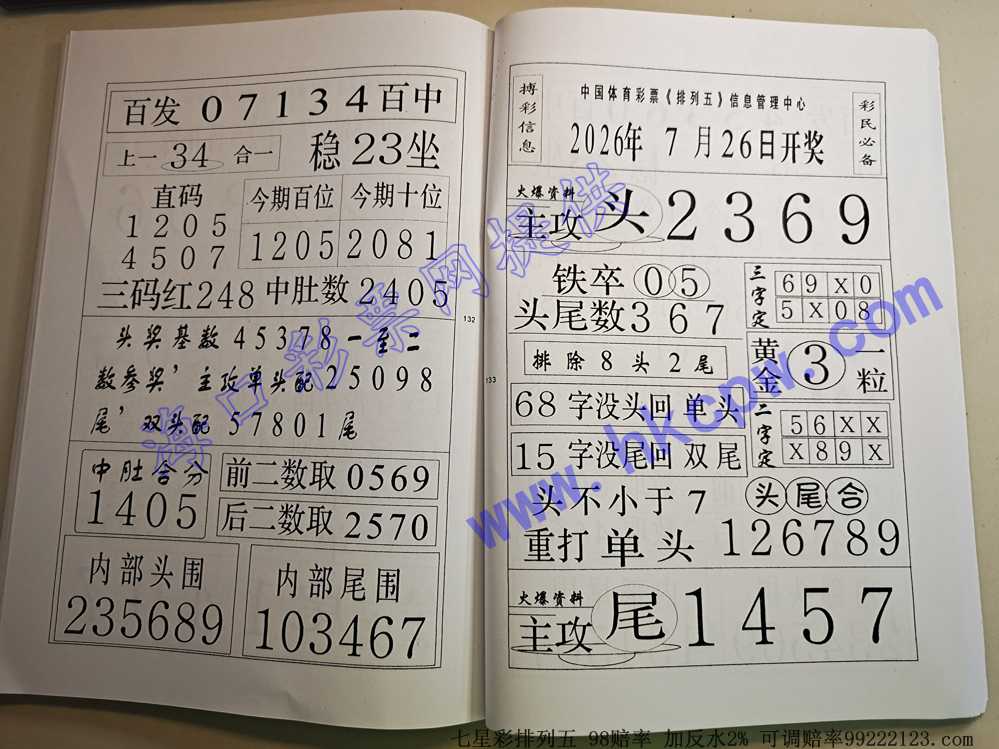 百发 07134 百中
上一 34 合一
稳 23 坐
直码
1205
4507
今期百位 今期十位
1205 2081
三码红 248 中肚数 2405
132
头奖基数 45378 一至二
数参奖’主攻单头配 25098
尾’双头配 57801 尾
中肚合分
1405
前二数取 0569
后二数取 2570
内部头围
235689
内部尾围
103467
搏彩信息
中国体育彩票《排列五》信息管理中心
2026年 7月26日开奖
彩民必备
火爆资料
主攻 头 2369
铁卒 05
头尾数 367
三字定
69X0
5X08
133
排除 8 头 2 尾
黄金 3 一粒
68 字没头回 单头
15 字没尾回 双尾
二字定
56XX
X89X
头不小于 7
头尾合
重打 单头 126789
火爆资料
主攻 尾 1457
海口彩票网提供
www.hkcpw.com
七星彩排列五 98赔率 加反水2% 可调赔率99222123.com